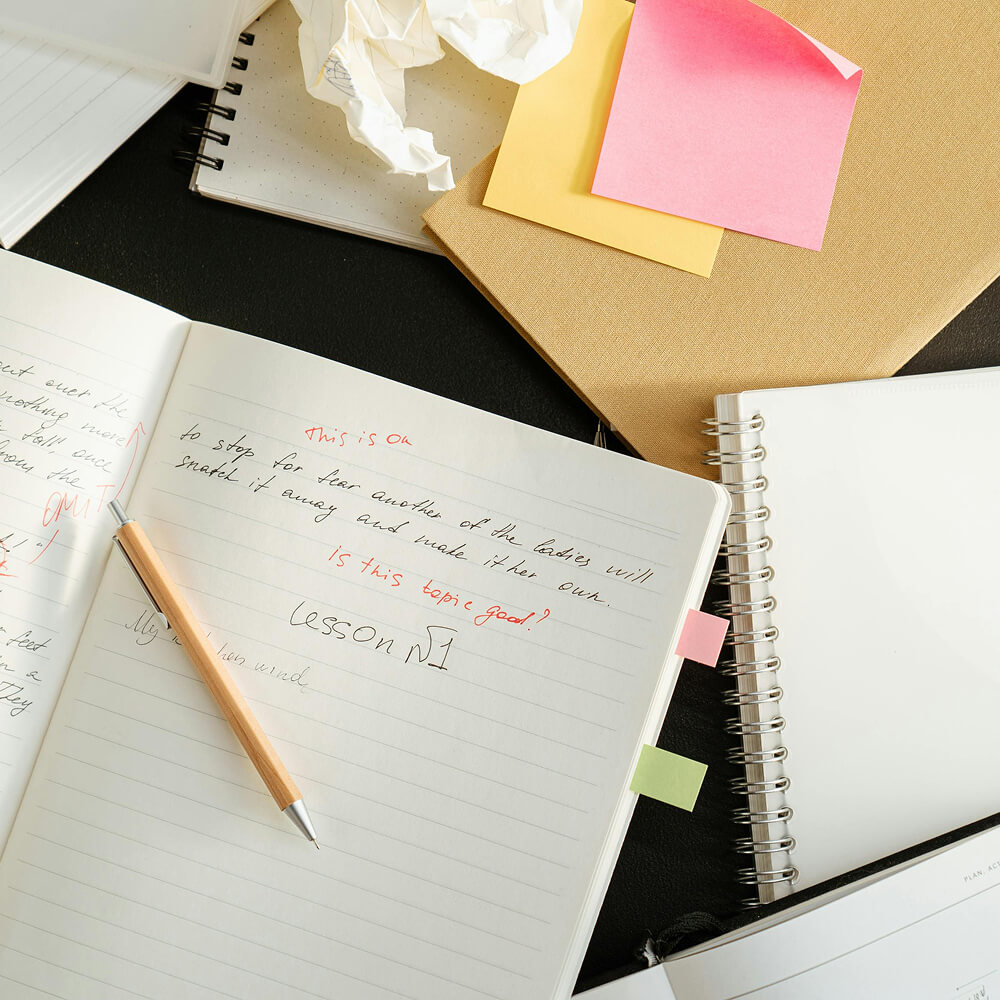 out over the
nothing more
fall", once
from the
OMIT
feet
in a
They
This is OK
to stop for fear another of the ladies will
snatch it away and make it her own.
is this topic good?
Lesson №1
My
wind
PLAN, ACT